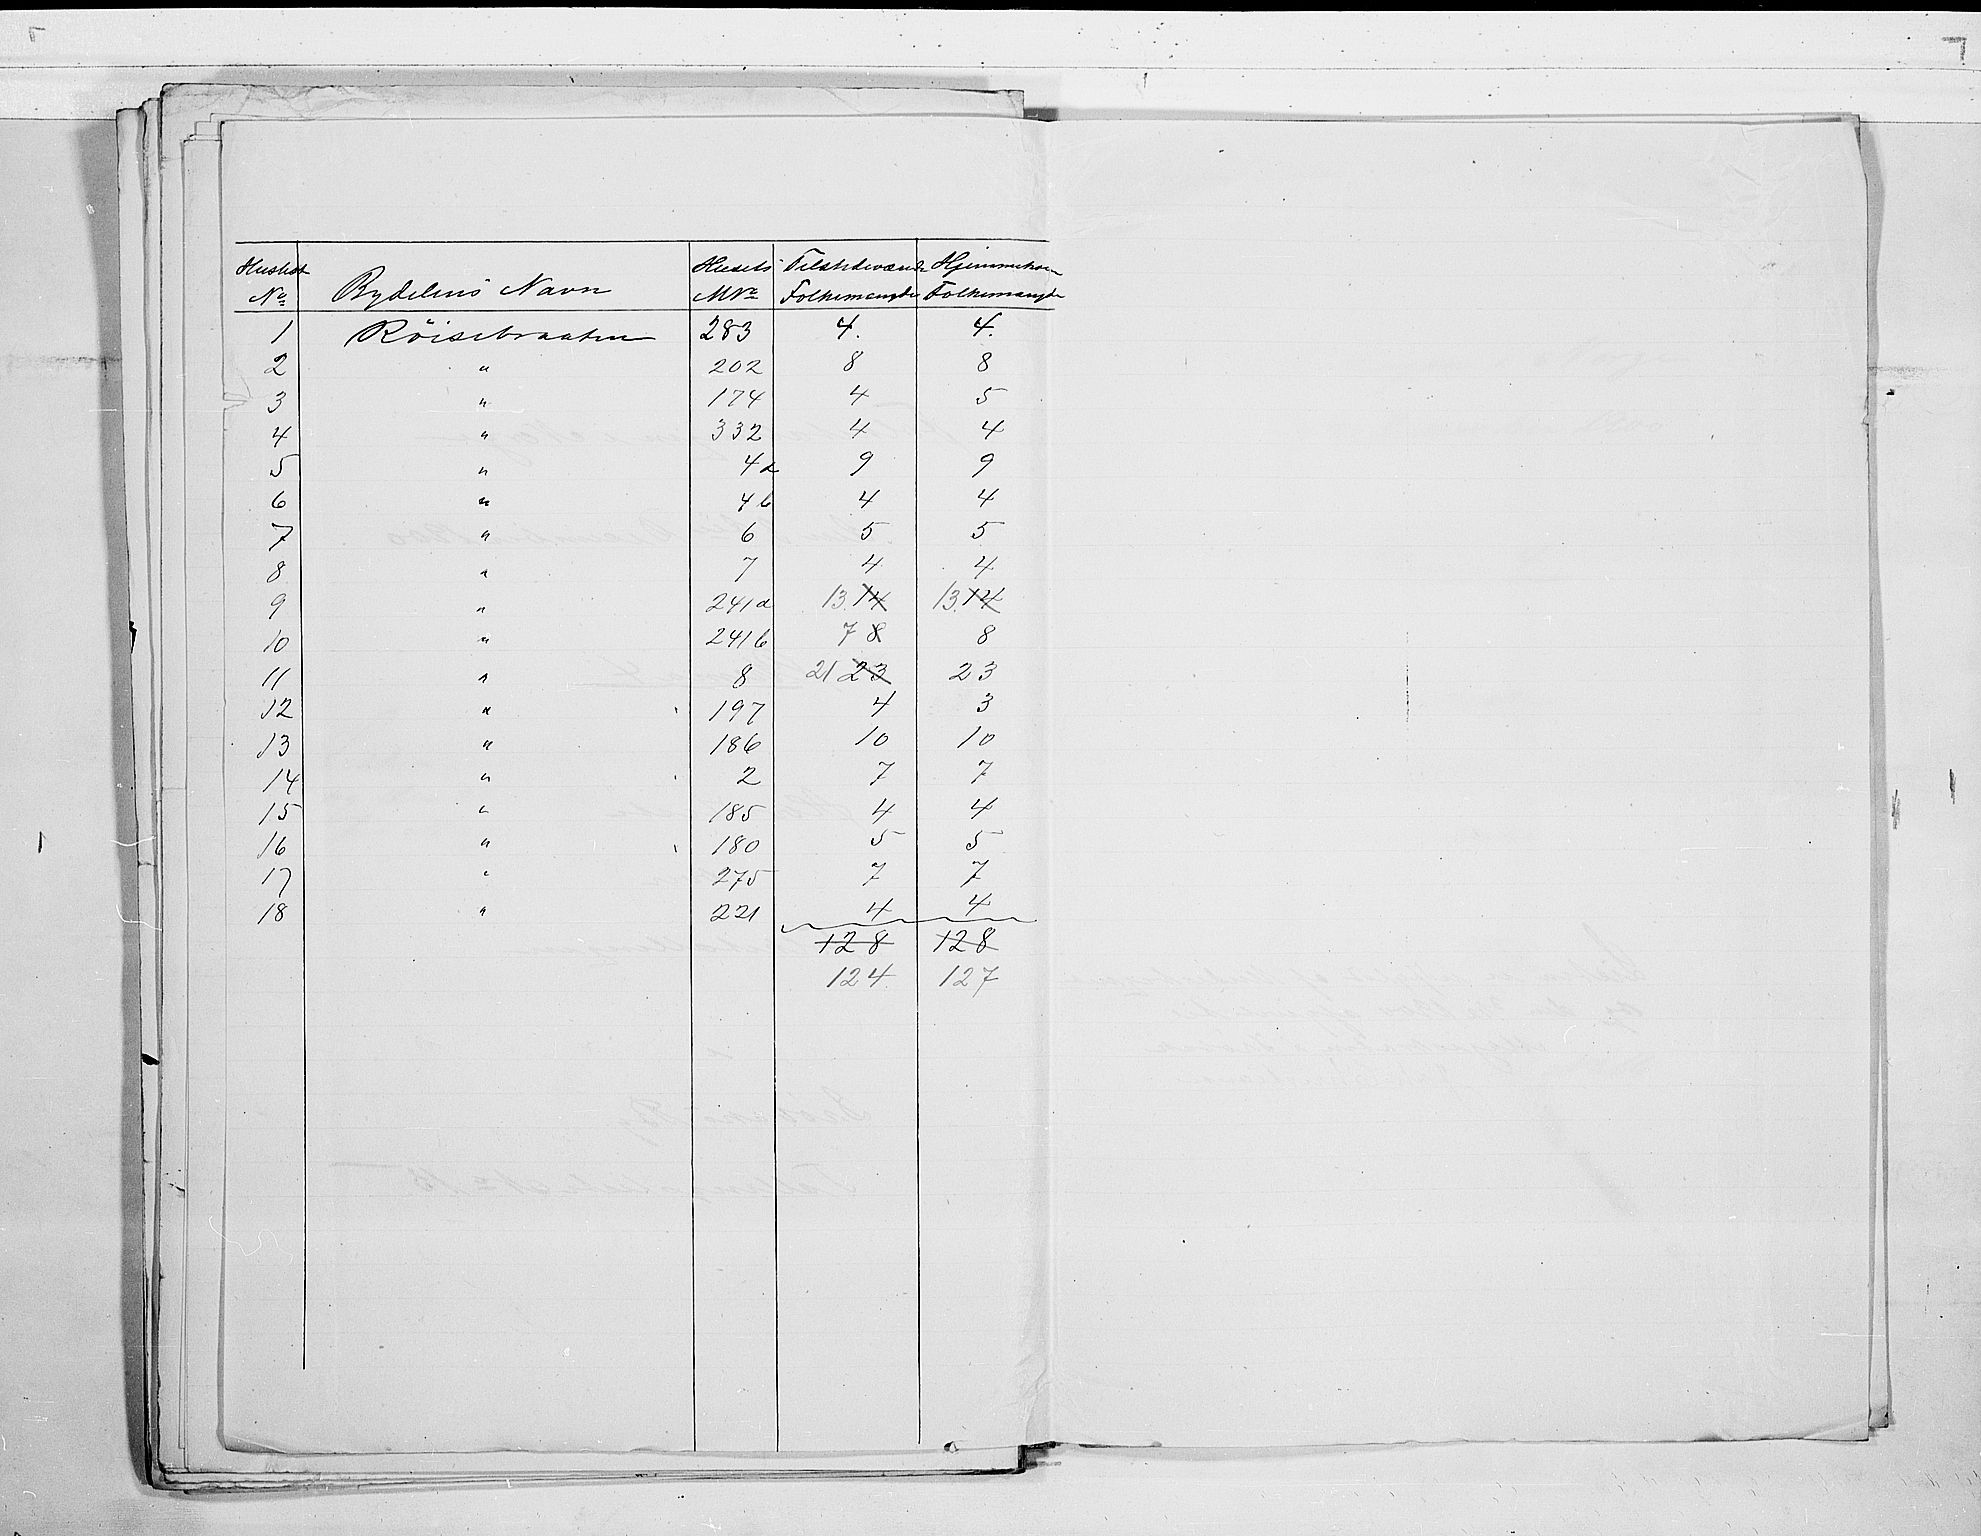 Huslist Bydelens Navn Husets Tilstedeværende Hjemmehør.
No. MNo. Folkemængde Folkemængde
1 Röisebraaten 283 4. 4.
2 " 202 8 8
3 " 174 4 5
4 " 332 4 4
5 " 4a 9 9
6 " 4b 4 4
7 " 6 5 5
8 " 7 4 4
9 " 241a 13. 14 13. 14
10 " 241b 7 8 8
11 " 8 21 23 23
12 " 197 4 3
13 " 186 10 10
14 " 2 7 7
15 " 185 4 4
16 " 180 5 5
17 " 275 7 7
18 " 221 4 4
128 128
124. 127